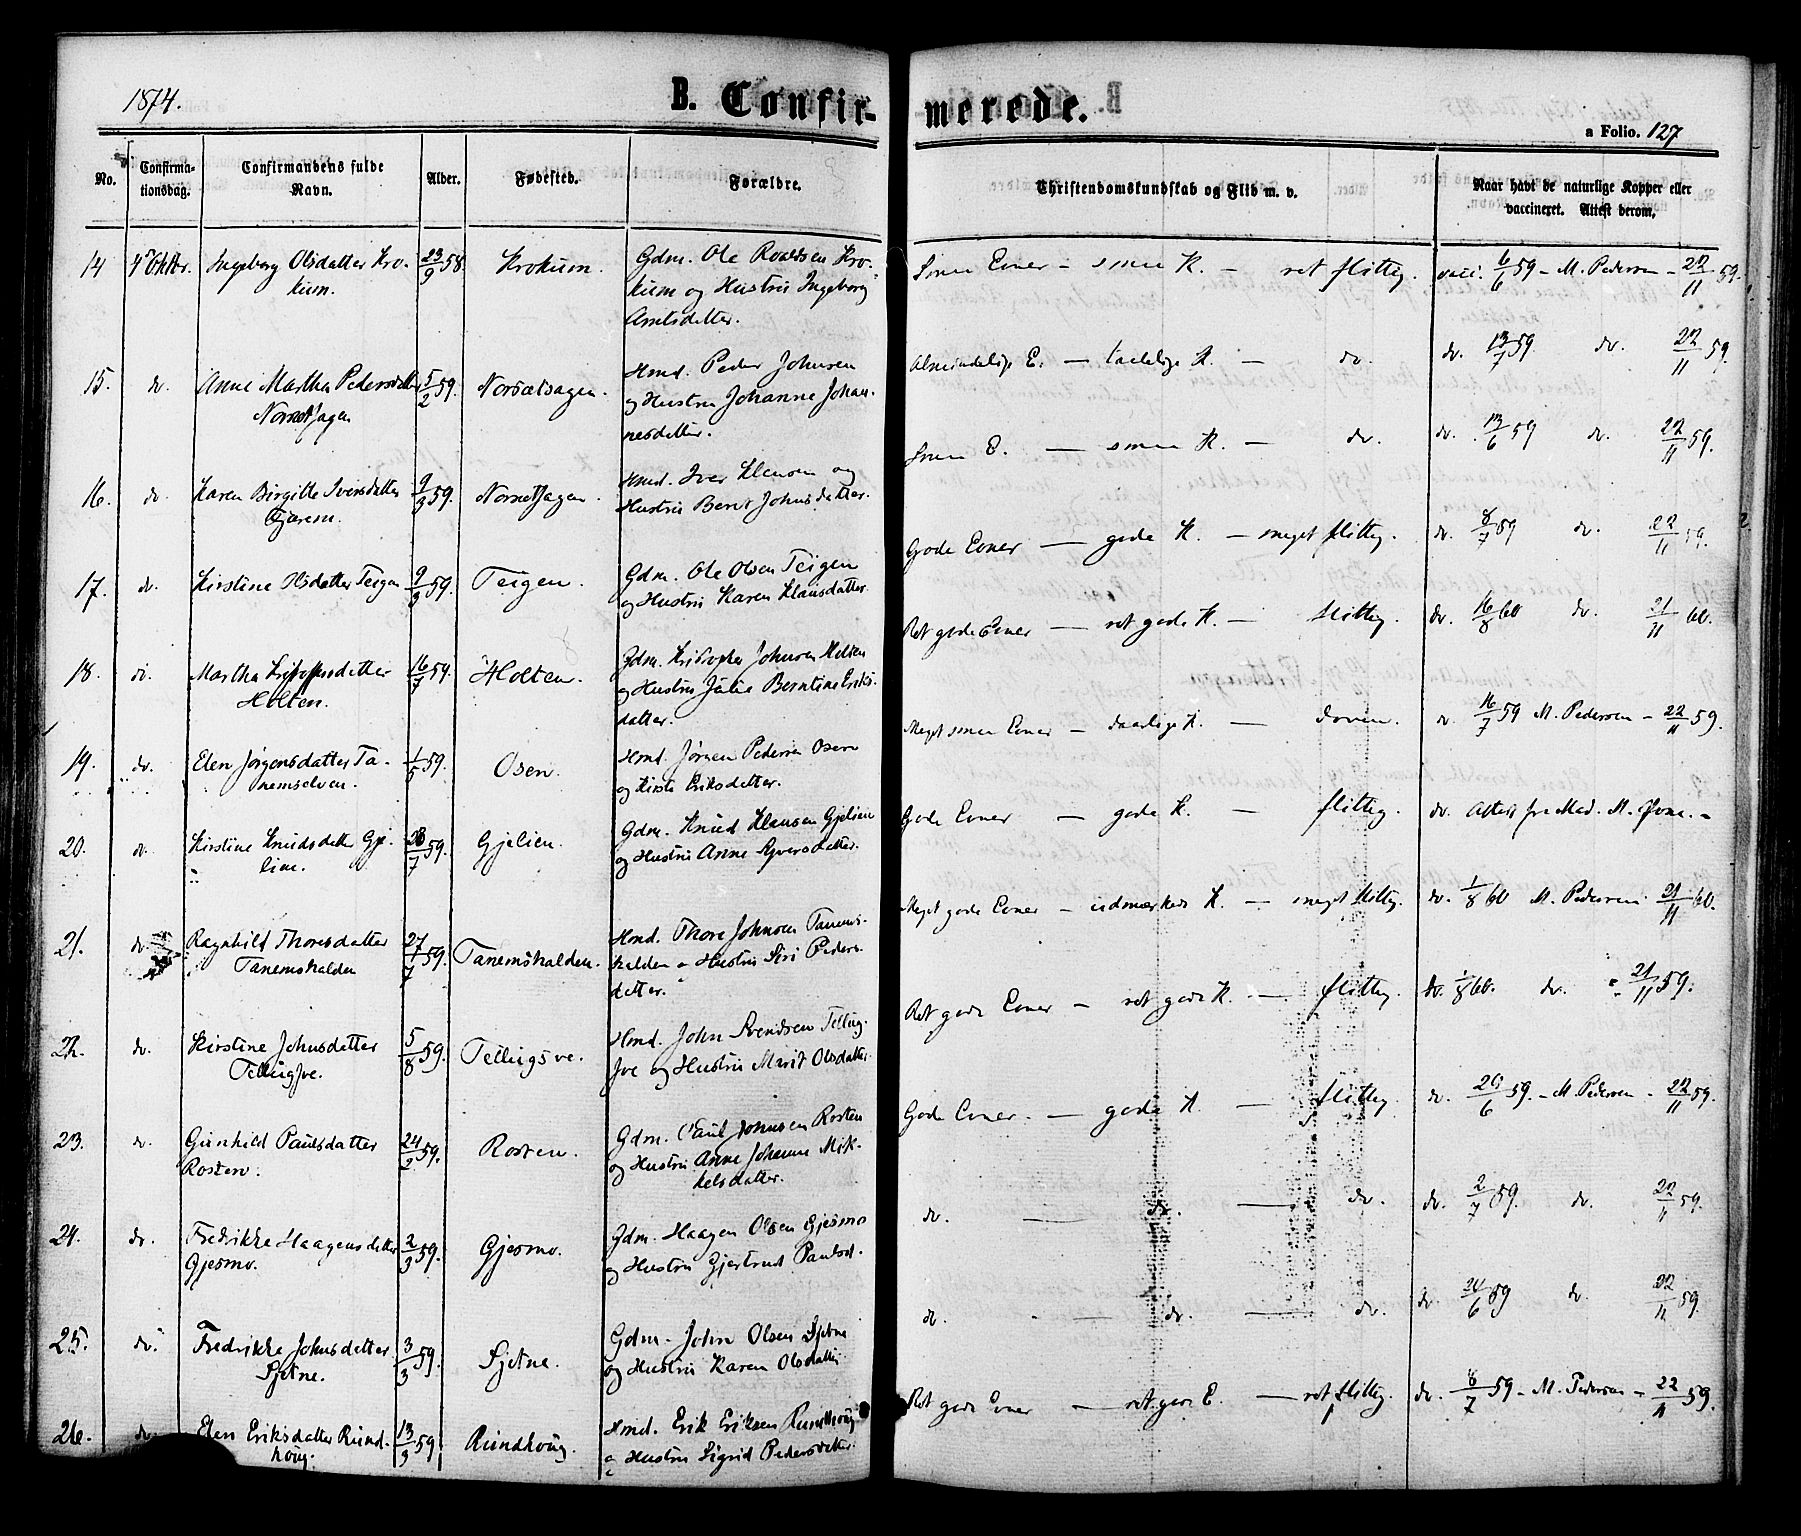 1874.
B. Confirmerede.
a Folio. 127
No.
Confirmationsdag.
Confirmandens fulde Navn.
Alder.
Fødested.
Forældre.
Christendomskundskab og Flid m. v.
Naar havt de naturlige Kopper eller
vaccineret. Attest derom.
14 4de Oktbr. Ingeborg Olsdatter Kro- 23/9 58. Krokum. Gdm. Ole Roaldsen Kro-
kum. kum og Hustru Ingeborg
Arntsdatter.
Smaa Evner – smaa K. – ret flittig. vacc. 6/6 59 – M. Pedersen – 22/11 59.
15. do. Anne Martha Pedersdatter 5/2 59. Norsætsagen. Hmd. Peder Johnsen
Norsetsagen og Hustru Johanne Johan-
nesdatter.
Almindelige E. – taalelige K. – do. do. 13/7 59 do. 22/11 59.
16. do. Karen Birgitte Iversdatter 9/3 59. Norsetsagen. Hmd. Iver Klausen og
Tjærem. Hustru Berit Johnsdatter.
Smaa E. – smaa K. – do. do. 13/6 59 do. 22/11 59.
17. do. Kirstine Olsdatter Teigen 9/3 59. Teigen. Gdm. Ole Olsen Teigen
og Hustru Karen Klausdatter.
Gode Evner – gode K. – meget flittig. do. 8/7 59 do. 22/11 59.
18. do. Martha Kristoffersdatter 16/7 59. Holten. Gdm. Kristopher Johnsen Holten
Holten. og Hustru Julie Berntine Eriks-
datter.
Ret gode Evner – ret gode K. – flittig. do. 16/8 60 do. 21/11 60.
19. do. Elen Jørgensdatter Ta- 1/5 59. Osen. Hmd. Jørgen Pedersen Osen
nemselven. og Kirsti Eriksdatter.
Meget smaa Evner – daarlige K. – doven. do. 16/7 59 M. Pedersen – 22/11 59.
20. do. Kirstine Knudsdatter Gje- 28/7 59. Gjelien. Gdm. Knud Klausen Gjelien
lien. og Hustru Anne Syversdatter.
Gode Evner – gode K. – flittig. do. Attest fra Mad. M.
21. do. Ragnhild Thoresdatter 27/7 59. Tanemskalden. Hmd. Thore Johnsen Tanems-
Tanemskalden kalden & Hustru Siri Peders-
datter.
Meget gode Evner – udmærkede K. – meget flittig. do. 1/8 60 M. Pedersen 21/11 60.
22. do. Kirstine Johnsdatter 5/8 59. Tellugsve. Hmd. John Svendsen Tellug-
Tellugsve. sve og Hustru Marit Olsdatter.
Ret gode Evner – ret gode K. – flittig. do. 1/8 60. do. 21/11 59.
23. do. Gunhild Paulsdatter 24/2 59. Rosten. Gdm. Paul Johnsen Rosten
Rosten. og Hustru Anne Johanne Mik-
kelsdatter.
Gode Evner. – gode K. – flittig. do. 29/6 59. – M. Pedersen – 22/11 59.
24. do. Fredrikke Haagensdatter 2/3 59. Gjesmo. Gdm. Haagen Olsen Gjesmo
Gjesmo. og Hustru Gjertrud Paulsd.
do. – do. – do. do. 2/7 59. do. 22/11 59.
25. do. Fredrikke Johnsdatter 3/3 59. Sjetne. Gdm. John Olsen Sjetne
Sjetne. og Hustru Karen Olsdatter.
do. – do. – do. do. 24/6 59 do. 22/11 59.
26. do. Elen Eriksdatter Rund- 13/3 59. Rundhoug. Hmd. Erik Eriksen Rundhoug
houg. & Hustru Sigrid Pedersdatter.
Ret gode Evner – ret gode E. – ret flittig. do. 8/7 59 – M. Pedersen – 22/11 59.